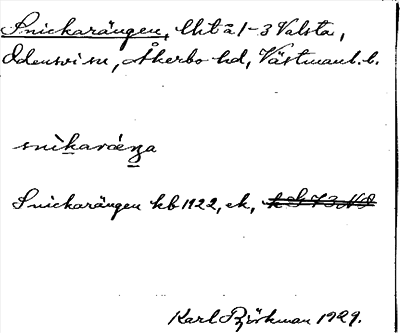 Snickarängen, lht å 1-3 Valsta,
Odensvi sn, Åkerbo hd, Västmanl. l.
snikaräŋa
Snickarängen kb 1922, ek,
Karl Björkman 1929.